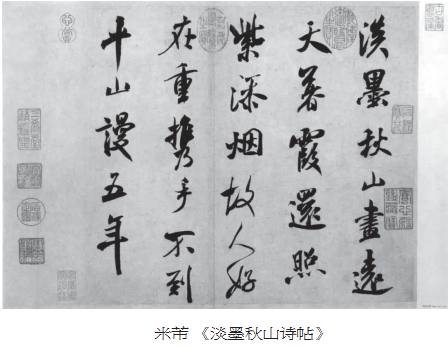 淡墨秋山畫遠
天暮霞還照
紫添烟故人好
在重攜手不到
平山謾五年
米芾 《淡墨秋山诗帖》